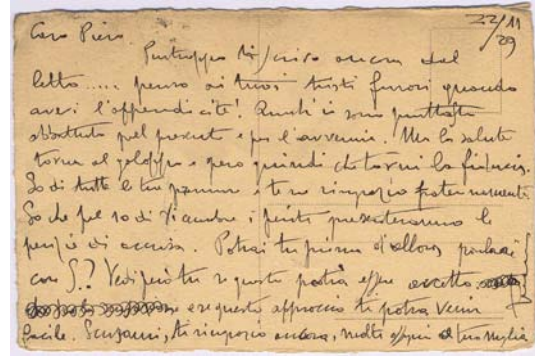 22/11
29
Caro Piero
Purtroppo ti scrivo ancora dal
letto..... penso ai tuoi tristi furori quando
avevi l'appendicite! Quindi io sono piuttosto
abbattuto pel presente e per l'avvenire. Ma la salute
torna al galoppo e spero quindi che torni la fiducia.
So di tutte le tue premure e te ne ringrazio fraternamente.
So che pel 10 di Dicembre i periti presenteranno le
perizie di accusa. Potrai tu prima d'allora parlare
con S.? Vedi però tu se questo potrà essere accetto
e se questo approccio ti potrà venir
facile. Scusami, ti ringrazio ancora, molti auguri a tua moglie